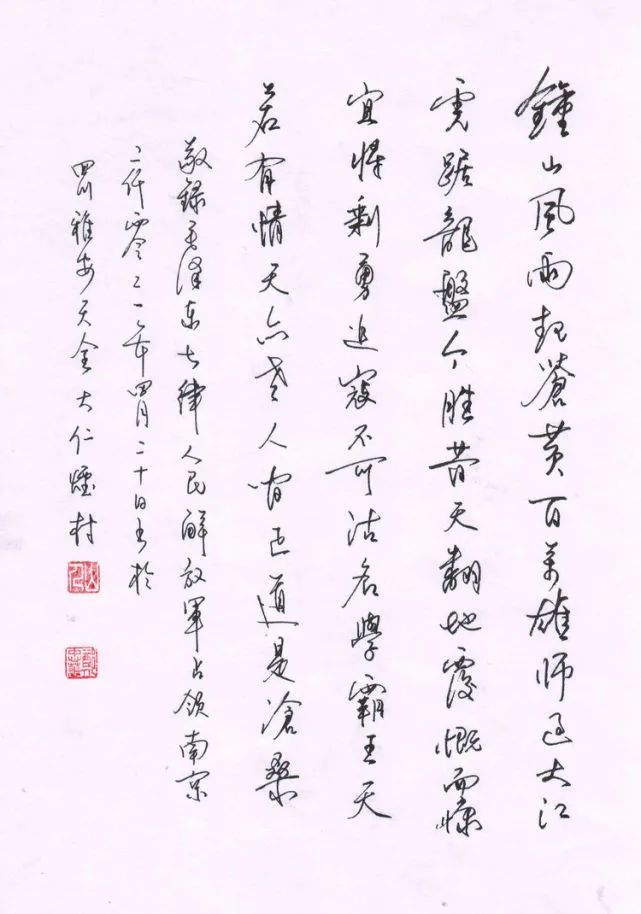 鐘山風雨起蒼黃百萬雄師過大江
虎踞龍盤今勝昔天翻地覆慨而慷
宜將剩勇追寇不可沽名學霸王天
若有情天亦老人間正道是滄桑
敬錄毛澤東七律人民解放軍占領南京
二仟零二一年四月二十日书於
四川雅安天全大仁煙村